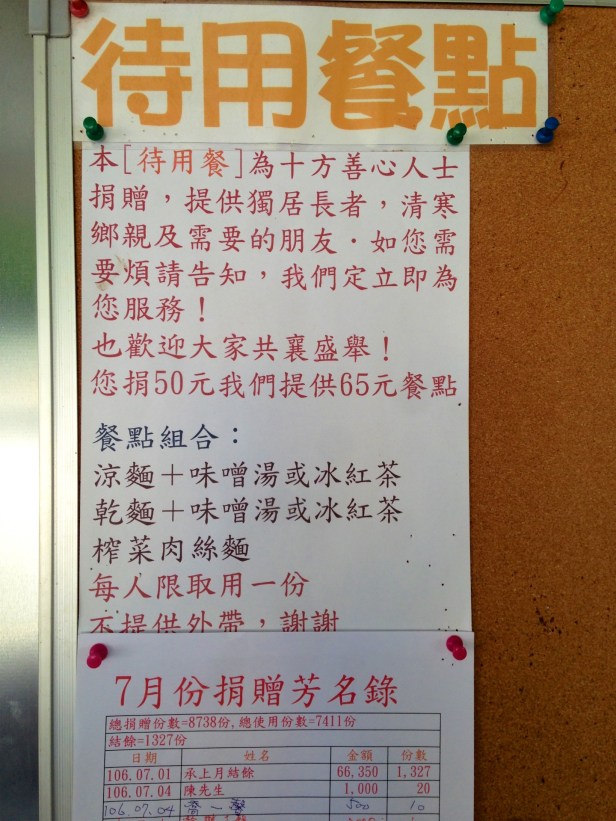 待用餐點
本[待用餐]為十方善心人士
捐贈，提供獨居長者，清寒
鄉親及需要的朋友．如您需
要煩請告知，我們定立即為
您服務！
也歡迎大家共襄盛舉！
您捐50元我們提供65元餐點
餐點組合：
涼麵＋味噌湯或冰紅茶
乾麵＋味噌湯或冰紅茶
榨菜肉絲麵
每人限取用一份
不提供外帶，謝謝
7月份捐贈芳名錄
總捐贈份數=8738份,總使用份數=7411份
結餘=1327份
日期 姓名 金額 份數
106.07.01 承上月結餘 66,350 1,327
106.07.04 陳先生 1,000 20
106.07.04 500 10